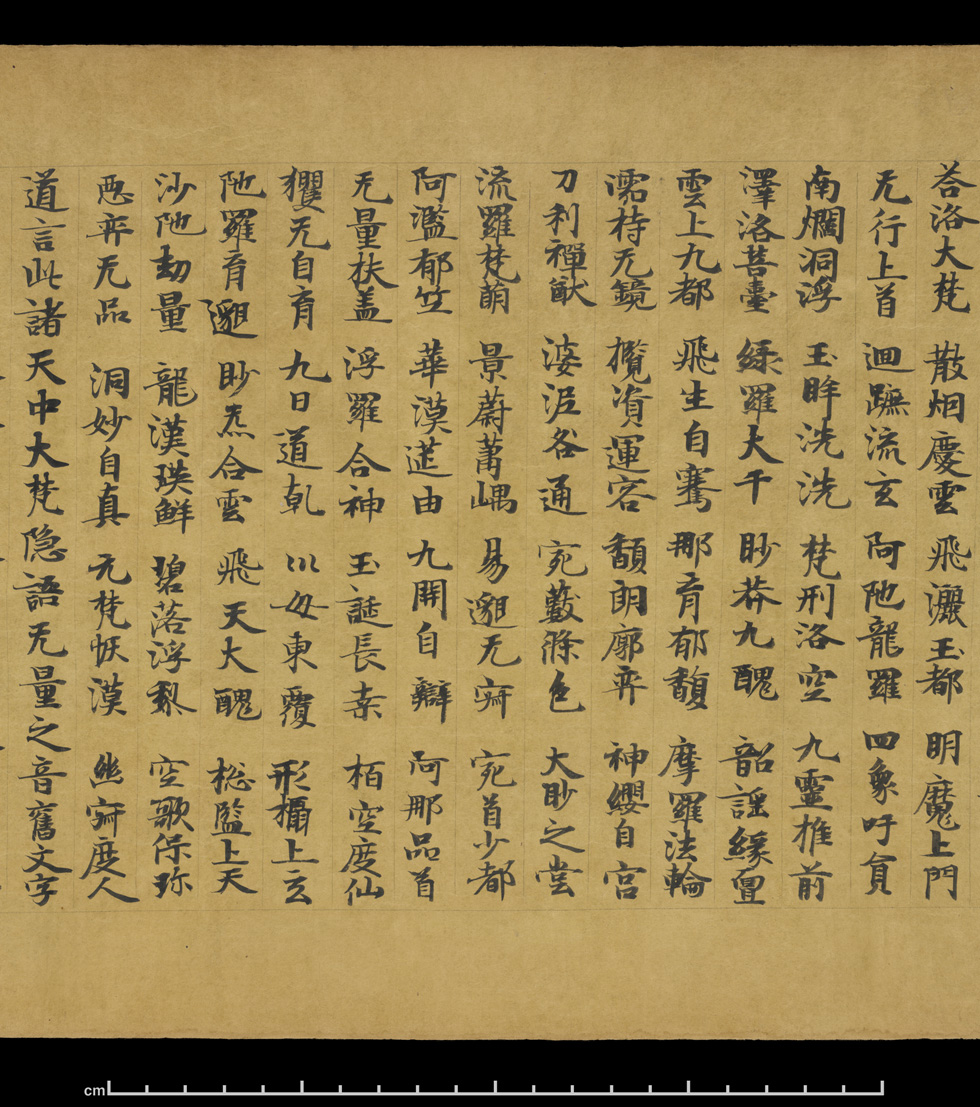 荅洛大梵 散烟慶雲 飛灑玉都 明魔上門
无行上首 迴蹠流玄 阿陁龍羅 四象吁貟
南爛洞浮 玉眸洗洗 梵刑洛空 九靈推前
澤洛菩臺 緑羅大千 眇莽九醜 韶謡縁亶
雲上九都 飛生自騫 那育郁馥 摩羅法輪
濡持无鏡 攬資運容 馥朗廓弈 神纓自宫
刀利禪猷 婆泥咎通 宛藪滌色 大眇之堂
流羅梵萠 景蔚蕭嵎 易邈无寂 宛首少都
阿濫郁竺 華漠莚由 九開自辯 阿那品首
无量扶盖 浮羅合神 玉誕長桒 栢空度仙
玃无自育 九日道乹 坎母東覆 形攝上玄
陁羅育邈 眇炁合雲 飛天大醜 揔監上天
沙陁劫量 龍漢瑛鮮 碧落浮黎 空歌保珎
惡弈无品 洞妙自真 元梵恢漠 幽寂度人
道言此諸天中大梵隐語无量之音舊文字